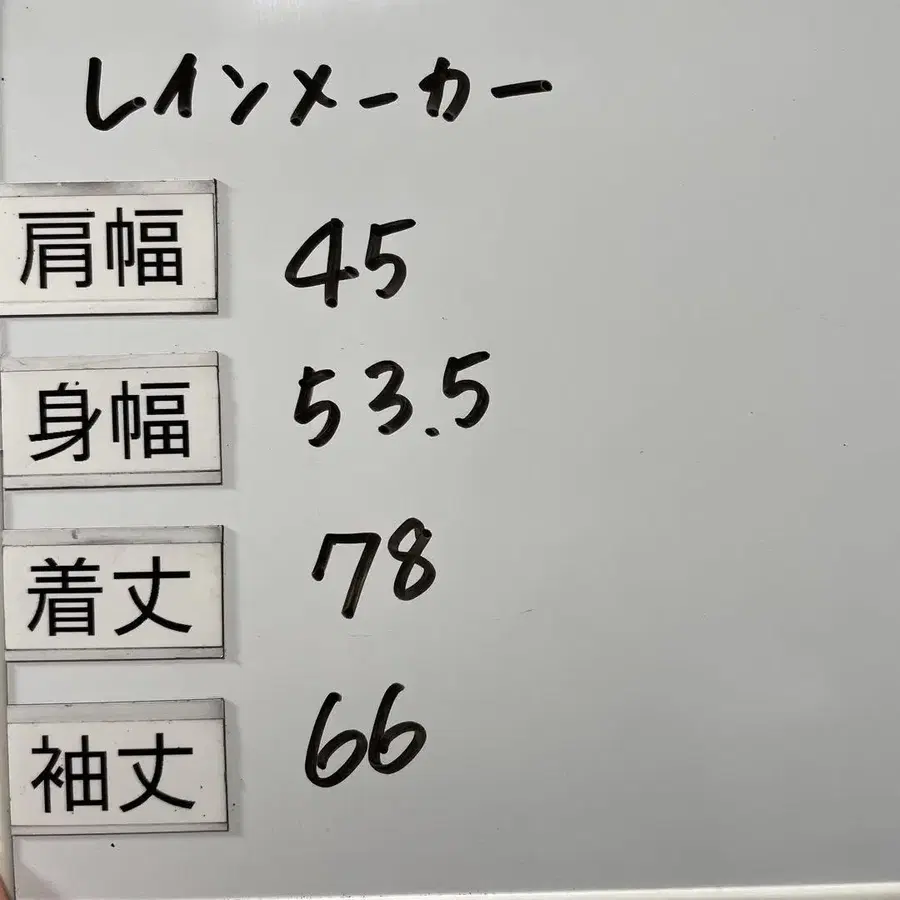 レインメーカー
肩幅 45
身幅 53.5
着丈 78
袖丈 66